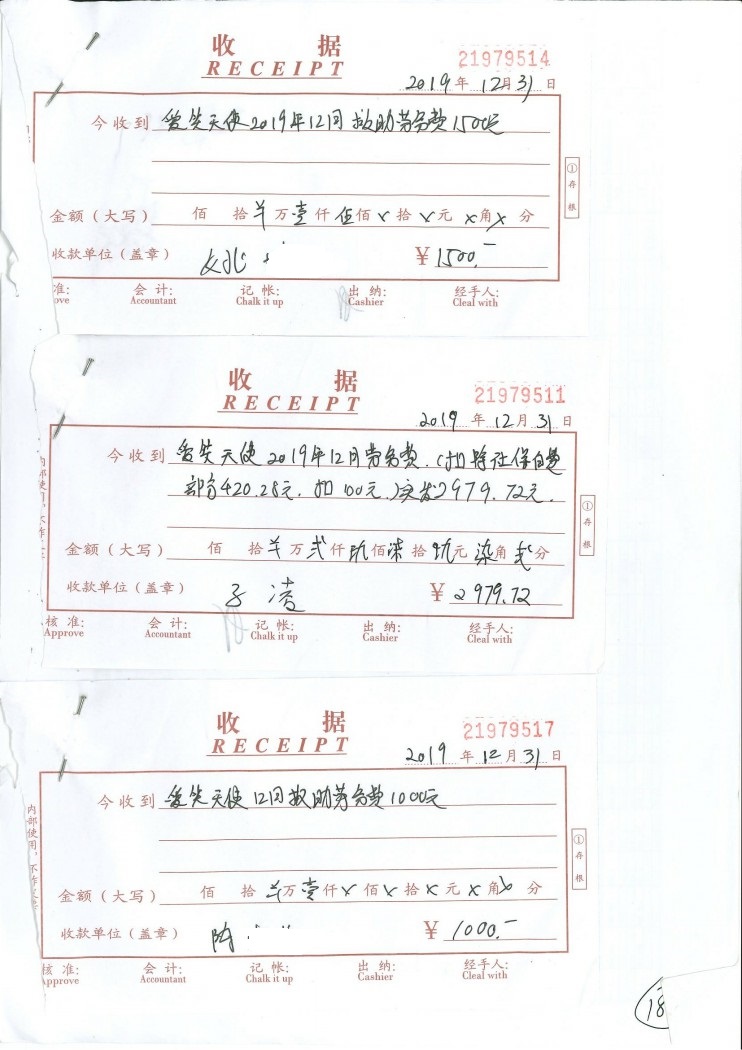 收 据
RECEIPT
21979514
2019 年 12 月 31 日
今收到 爱笑天使2019年12月救助劳务费1500元
① 存根
金额（大写） 佰 拾 ¥ 万 壹 仟 伍 佰 x 拾 x 元 x 角 x 分
收款单位（盖章）
¥ 1500.-
准: 会 计: 记 帐: 出 纳: 经手人:
ove Accountant Chalk it up Cashier Cleal with
收 据
RECEIPT
21979511
2019 年 12 月 31 日
内部使用，不作
今收到 爱笑天使2019年12月劳务费.(扣除社保自费
部分420.28元. 扣100元.)实发2979.72元.
① 存根
金额（大写） 佰 拾 ¥ 万 贰 仟 玖 佰 柒 拾 玖 元 柒 角 贰 分
收款单位（盖章） 子凌
¥ 2979.72
核 准: 会 计: 记 帐: 出 纳: 经手人:
Approve Accountant Chalk it up Cashier Cleal with
收 据
RECEIPT
21979517
2019 年 12 月 31 日
内部使用，不作
今收到 爱笑天使12月救助劳务费1000元
① 存根
金额（大写） 佰 拾 ¥ 万 壹 仟 x 佰 x 拾 x 元 x 角 x 分
收款单位（盖章） 陶
¥ 1000.-
核 准: 会 计: 记 帐: 出 纳: 经手人:
Approve Accountant Chalk it up Cashier Cleal with
18